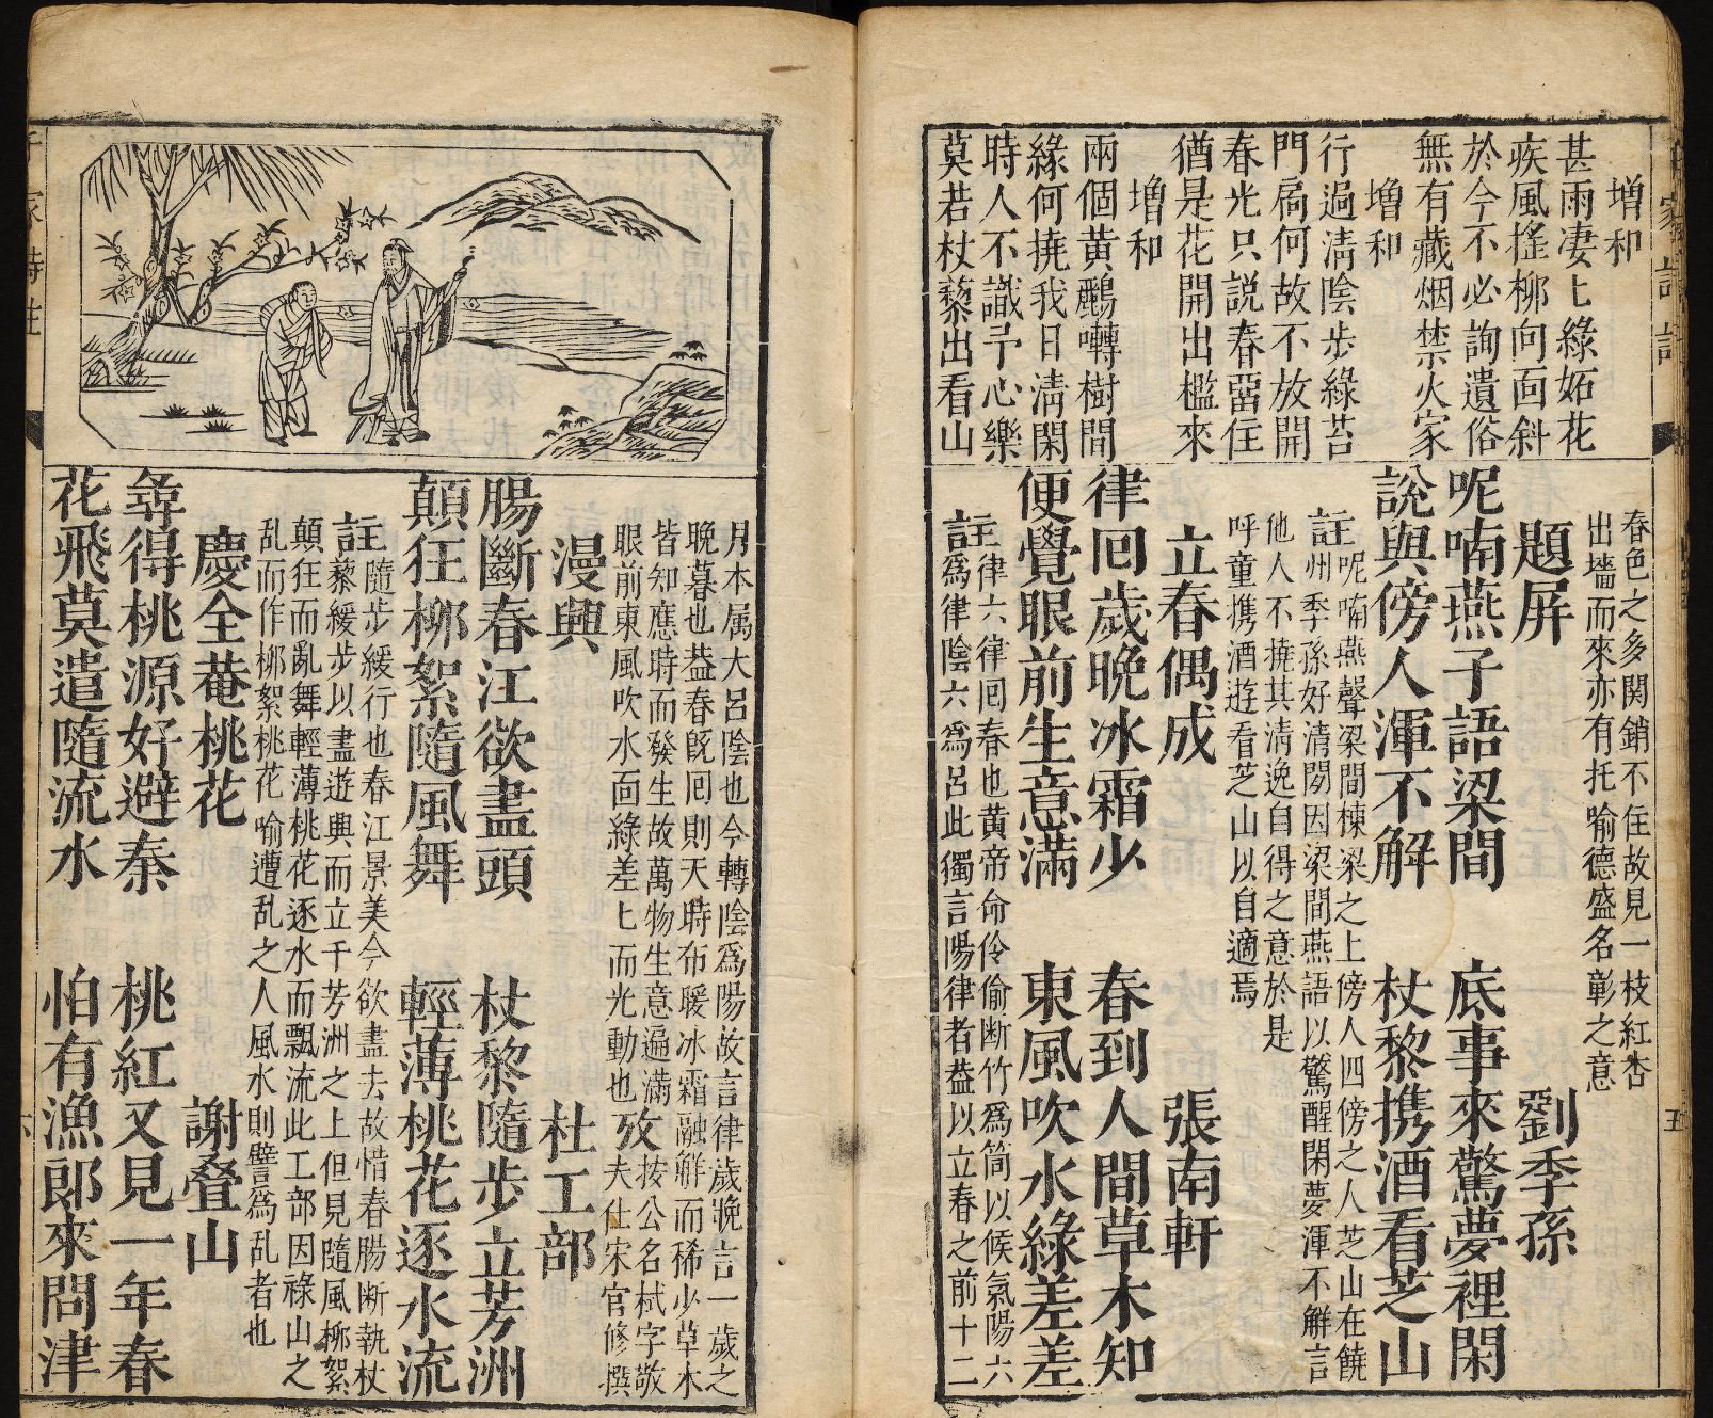 增和
甚雨凄〻綠妬花
疾風搖柳向面斜
於今不必詢遺俗
無有藏烟禁火家
增和
行過淸陰步綠苔
門扃何故不放開
春光只説春畱住
猶是花開出檻來
增和
兩個黄鸝囀樹間
緣何撓我日淸閑
時人不識予心樂
莫若杖藜出看山
春色之多関銷不住故見一枝紅杏
出墻而來亦有托喻德盛名彰之意
題屏 劉季孫
呢喃燕子語梁間 底事來驚夢裡閑
說與傍人渾不解 杖黎携酒看芝山
註呢喃燕聲梁間棟梁之上傍人四傍之人芝山在饒
州季孫好清閒因梁間燕語以驚醒閑夢渾不解言
他人不撓其淸逸自得之意於是
呼童携酒遊看芝山以自適焉
立春偶成 張南軒
律囘歲晚冰霜少 春到人間草木知
便覺眼前生意滿 東風吹水綠差差
註律六律囘春也黄帝命伶倫断竹爲筒以候氣陽六
爲律陰六爲呂此獨言陽律者葢以立春之前十二
月本属大呂陰也今轉陰爲陽故言律歲晚言一歲之
晚暮也葢春旣囘則天時布暖冰霜融觧而稀少草木
皆知應時而發生故萬物生意遍滿 攷按公名栻字敬
眼前東風吹水面綠差〻而光動也 夫仕宋官修撰
漫興 杜工部
腸斷春江欲盡頭 杖黎隨步立芳洲
顛狂柳絮隨風舞 輕薄桃花逐水流
註隨步緩行也春江景美今欲盡去故惜春腸断執杖
藜緩步以盡遊興而立千芳洲之上但見隨風柳絮
顛狂而亂舞輕薄桃花逐水而飄流此工部因祿山之
乱而作柳絮桃花喻遭乱之人風水則譬爲乱者也
慶全菴桃花 謝叠山
尋得桃源好避秦 桃紅又見一年春
花飛莫遣隨流水 怕有漁郎來問津